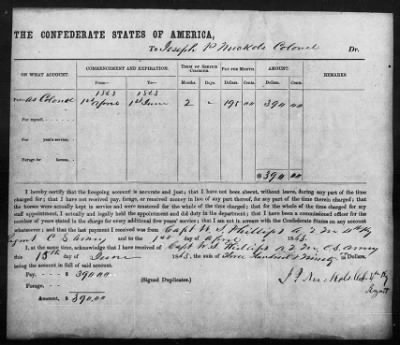 THE CONFEDERATE STATES OF AMERICA,
To Joseph P Nuckols Colonel Dr.
ON WHAT ACCOUNT. COMMENCEMENT AND EXPIRATION. TERM OF SERVICE CHARGED. PAY PER MONTH. AMOUNT. REMARKS
From— To— Months. Days. Dollars. Cents. Dollars. Cents.
1863 1863
as Colonel 1st April 1st June 2 " 195 00 390 00
For myself
For years' service.
Forage for horses.
$390 00
I hereby certify that the foregoing account is accurate and just; that I have not been absent, without leave, during any part of the time
charged for; that I have not received pay, forage, or received money in lieu of any part thereof, for any part of the time therein charged; that
the horses were actually kept in service and were mustered for the whole of the time charged; that for the whole of the time charged for my
staff appointment, I actually and legally held the appointment and did duty in the department; that I have been a commissioned officer for the
number of years stated in the charge for every additional five years' service; that I am not in arrears with the Confederate States on any account
whatsoever; and that the last payment I received was from Capt W. S. Phillips A. Q. M. 4th Ky
Regmt C S Army and to the 1st day of April 1863.
I, at the same time, acknowledge that I have received of Capt W. S. Phillips A Q M C S Army
this 15th day of June 1863, the sum of Three Hundred & Ninety Dollars,
being the amount in full of said account.
Pay, - - $390.00
Forage, - -
Amount, $390.00
(Signed Duplicates.)
J P Nuckols Col 4th Ky
Regmt